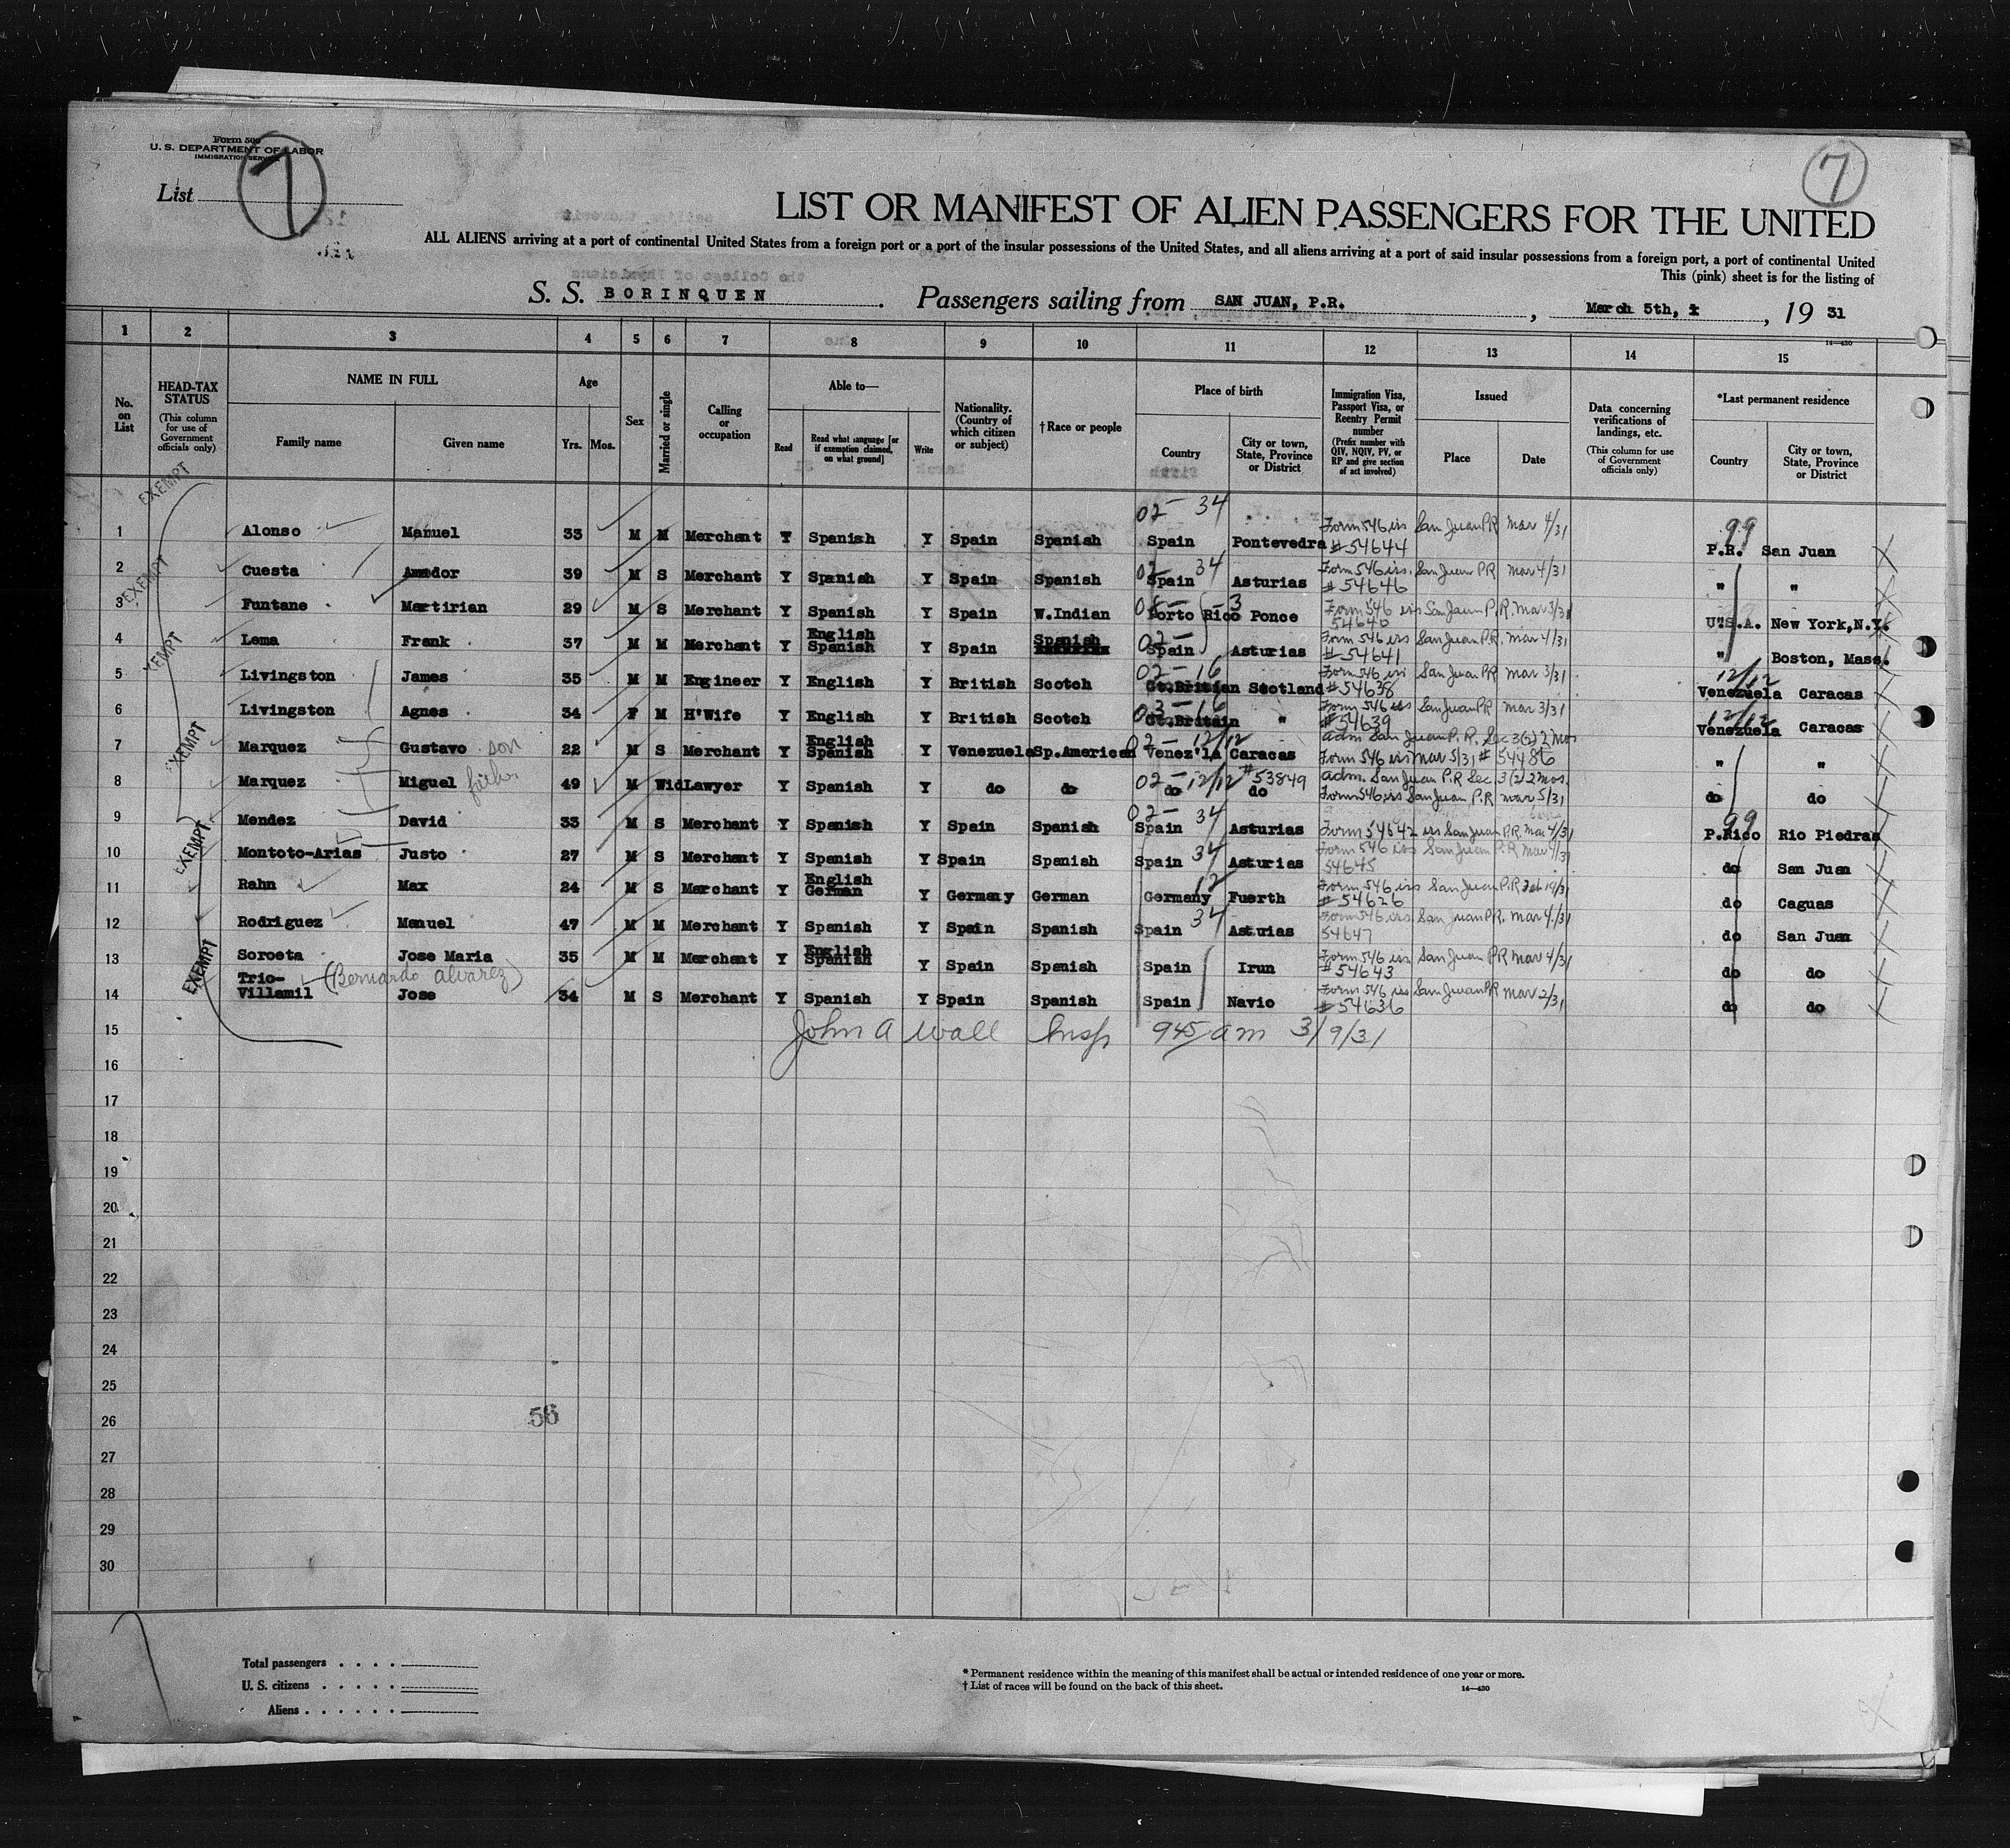 Form 500
U. S. DEPARTMENT OF LABOR
IMMIGRATION SERVICE
List
7
7
LIST OR MANIFEST OF ALIEN PASSENGERS FOR THE UNITED
ALL ALIENS arriving at a port of continental United States from a foreign port or a port of the insular possessions of the United States, and all aliens arriving at a port of said insular possessions from a foreign port, a port of continental United
This (pink) sheet is for the listing of
S. S. BORINQUEN. Passengers sailing from SAN JUAN, P.R., March 5th, 1931
14—430
1 2 3 4 5 6 7 8 9 10 11 12 13 14 15
No. on List
HEAD-TAX STATUS (This column for use of Government officials only)
NAME IN FULL Family name Given name
Age Yrs. Mos.
Sex
Married or single
Calling or occupation
Able to— Read Read what language [or if exemption claimed, on what ground] Write
Nationality. (Country of which citizen or subject)
†Race or people
Place of birth Country City or town, State, Province or District
Immigration Visa, Passport Visa, or Reentry Permit number (Prefix number with QIV, NQIV, PV, or RP and give section of act involved)
Issued Place Date
Data concerning verifications of landings, etc. (This column for use of Government officials only)
*Last permanent residence Country City or town, State, Province or District
EXEMPT
EXEMPT
EXEMPT
EXEMPT
EXEMPT
EXEMPT
1 Alonso Manuel 33 M M Merchant Y Spanish Y Spain Spanish 02- 34 Spain Pontevedra Form 546 iss San Juan PR Mar 4/31 #54644 99 P.R. San Juan
2 Cuesta Amador 39 M S Merchant Y Spanish Y Spain Spanish 02- 34 Spain Asturias Form 546 iss. San Juan PR Mar 4/31 #54646 " "
3 Funtane Martirian 29 M S Merchant Y Spanish Y Spain W.Indian 3 Porto Rico Ponce Form 546 iss San Juan P.R. Mar 3/31 54640 U.S.A. New York, N.Y.
4 Lema Frank 37 M M Merchant Y English Spanish Y Spain Spanish 02- Spain Asturias Form 546 iss San Juan P.R. Mar 4/31 #54641 " Boston, Mass.
5 Livingston James 35 M M Engineer Y English Y British Scotch 02-16 Gt.Britian Scotland Form 546 iss San Juan PR Mar 3/31 #54638 12/12 Venezuela Caracas
6 Livingston Agnes 34 F M H'Wife Y English Y British Scotch 03-16 Gt.Britain " Form 546 iss San Juan PR Mar 3/31 #54639 12/12 Venezuela Caracas
7 Marquez Gustavo son 22 M S Merchant Y English Spanish Y Venezuela Sp.American 02-12/12 Venez'la Caracas adm San Juan P.R. Sec 3(2) 2 mos Form 546 iss Mar 5/31 #54486 " "
8 Marquez Miguel father 49 M Wid Lawyer Y Spanish Y do do 02-12/12 #53849 do do adm. San Juan P.R Sec 3(2) 2 mos. Form 546 iss San Juan P.R Mar 5/31 do do
9 Mendez David 33 M S Merchant Y Spanish Y Spain Spanish 02- 34 Spain Asturias Form 54642 iss San Juan P.R. Mar 4/31 99 P.Rico Rio Piedras
10 Montoto-Arias Justo 27 M S Merchant Y Spanish Y Spain Spanish 34 Spain Asturias Form 546 iss San Juan P.R Mar 4/31 54645 do San Juan
11 Rahn Max 24 M S Marchant Y English German Y Germany German 12 Germany Fuerth Form 546 iss San Juan P.R Feb 19/31 #54626 do Caguas
12 Rodriguez Manuel 47 M M Merchant Y Spanish Y Spain Spanish 34 Spain Astuias Form 546 iss. San Juan PR. Mar 4/31 54647 do San Juan
13 Soroeta Jose Maria 35 M M Merchant Y English Spanish Y Spain Spanish Spain Irun Form 546 iss San Juan PR Mar 4/31 #54643 do do
14 Trio-Villamil (Bernardo alvarez) Jose 34 M S Merchant Y Spanish Y Spain Spanish Spain Navio Form 546 iss San Juan PR Mar 2/31 #54636 do do
15 John A Wall Insp 945 am 3/9/31
16
17
18
19
20
21
22
23
24
25
26
56
27
28
29
30
Total passengers
U. S. citizens
Aliens
* Permanent residence within the meaning of this manifest shall be actual or intended residence of one year or more.
† List of races will be found on the back of this sheet.
14—430